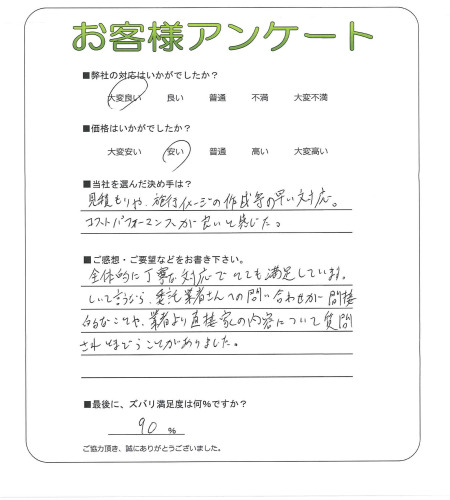 お客様アンケート
■弊社の対応はいかがでしたか？
大変良い 良い 普通 不満 大変不満
■価格はいかがでしたか？
大変安い 安い 普通 高い 大変高い
■当社を選んだ決め手は？
見積もりや、施行イメージの作成等の早い対応。
コストパフォーマンスが良いと感じた。
■ご感想・ご要望などをお書き下さい。
全体的に丁寧な対応でとても満足しています。
しいて言うなら、委託業者さんへの問い合わせが間接
的なことや、業者より直接家の内容について質問
されとまどうことがありました。
■最後に、ズバリ満足度は何％ですか？
90 ％
ご協力頂き、誠にありがとうございました。